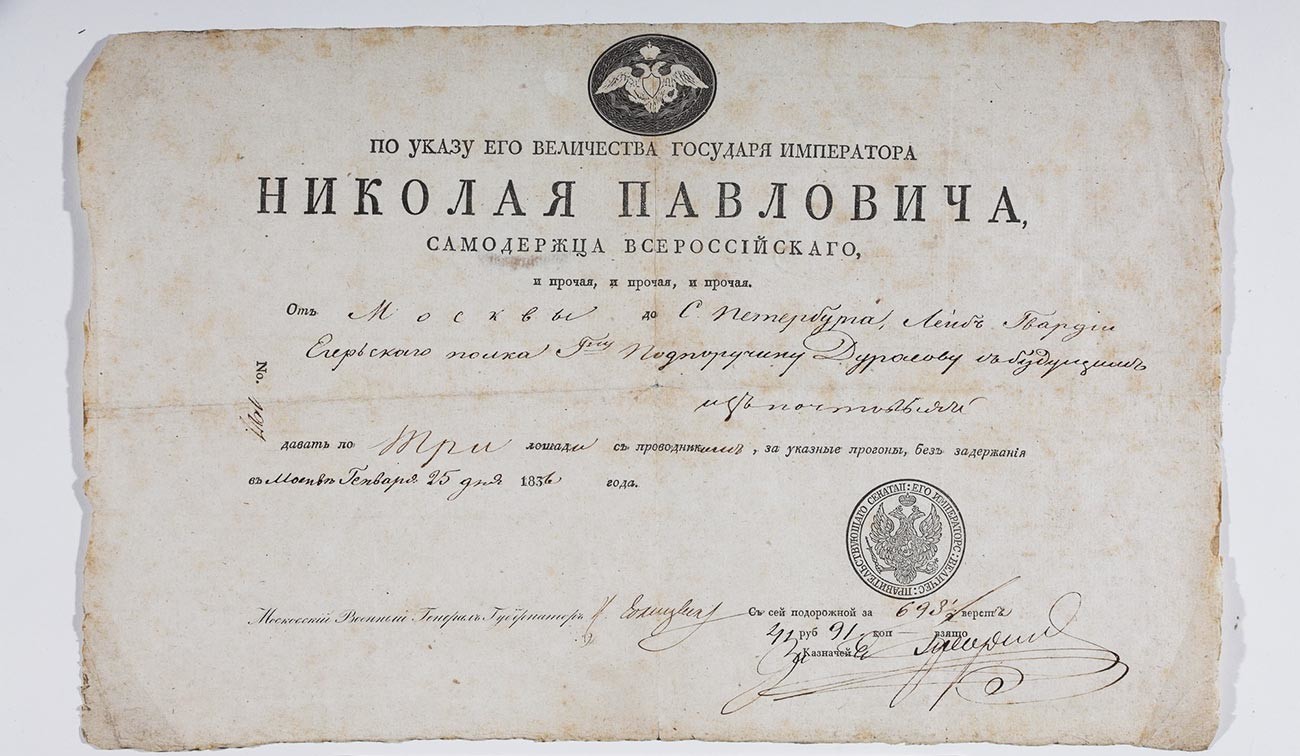 ПО УКАЗУ ЕГО ВЕЛИЧЕСТВА ГОСУДАРЯ ИМПЕРАТОРА
НИКОЛАЯ ПАВЛОВИЧА,
САМОДЕРЖЦА ВСЕРОССІЙСКАГО,
и прочая, и прочая, и прочая.
Отъ Москвы до С. Петербурга, Лейбъ Гвардіи
Егерьскаго полка Гну Подпоручику Дурасову съ будущимъ
изъ почтовыхъ
No.
давать по три лошади съ проводникомъ, за указные прогоны, безъ задержанія
въ Москвѣ Генваря 25 дня 1836 года.
ПРАВИТЕЛЬСТВУЮЩАГО СЕНАТА П: ЕГО ИМПЕРАТОРС: ВЕЛИЧЕС:
Московскій Военный Генералъ Губернаторъ К. Голицынъ
Съ сей подорожной за 698½ верстъ
41 руб 91 коп взято
Казначей